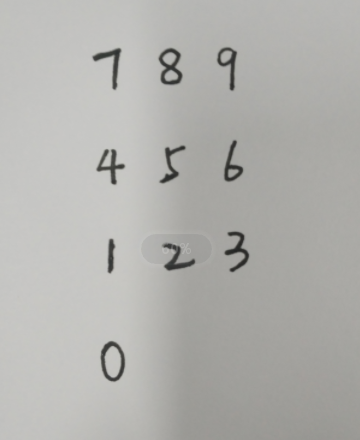 7 8 9
4 5 6
1 2 3
60%
0